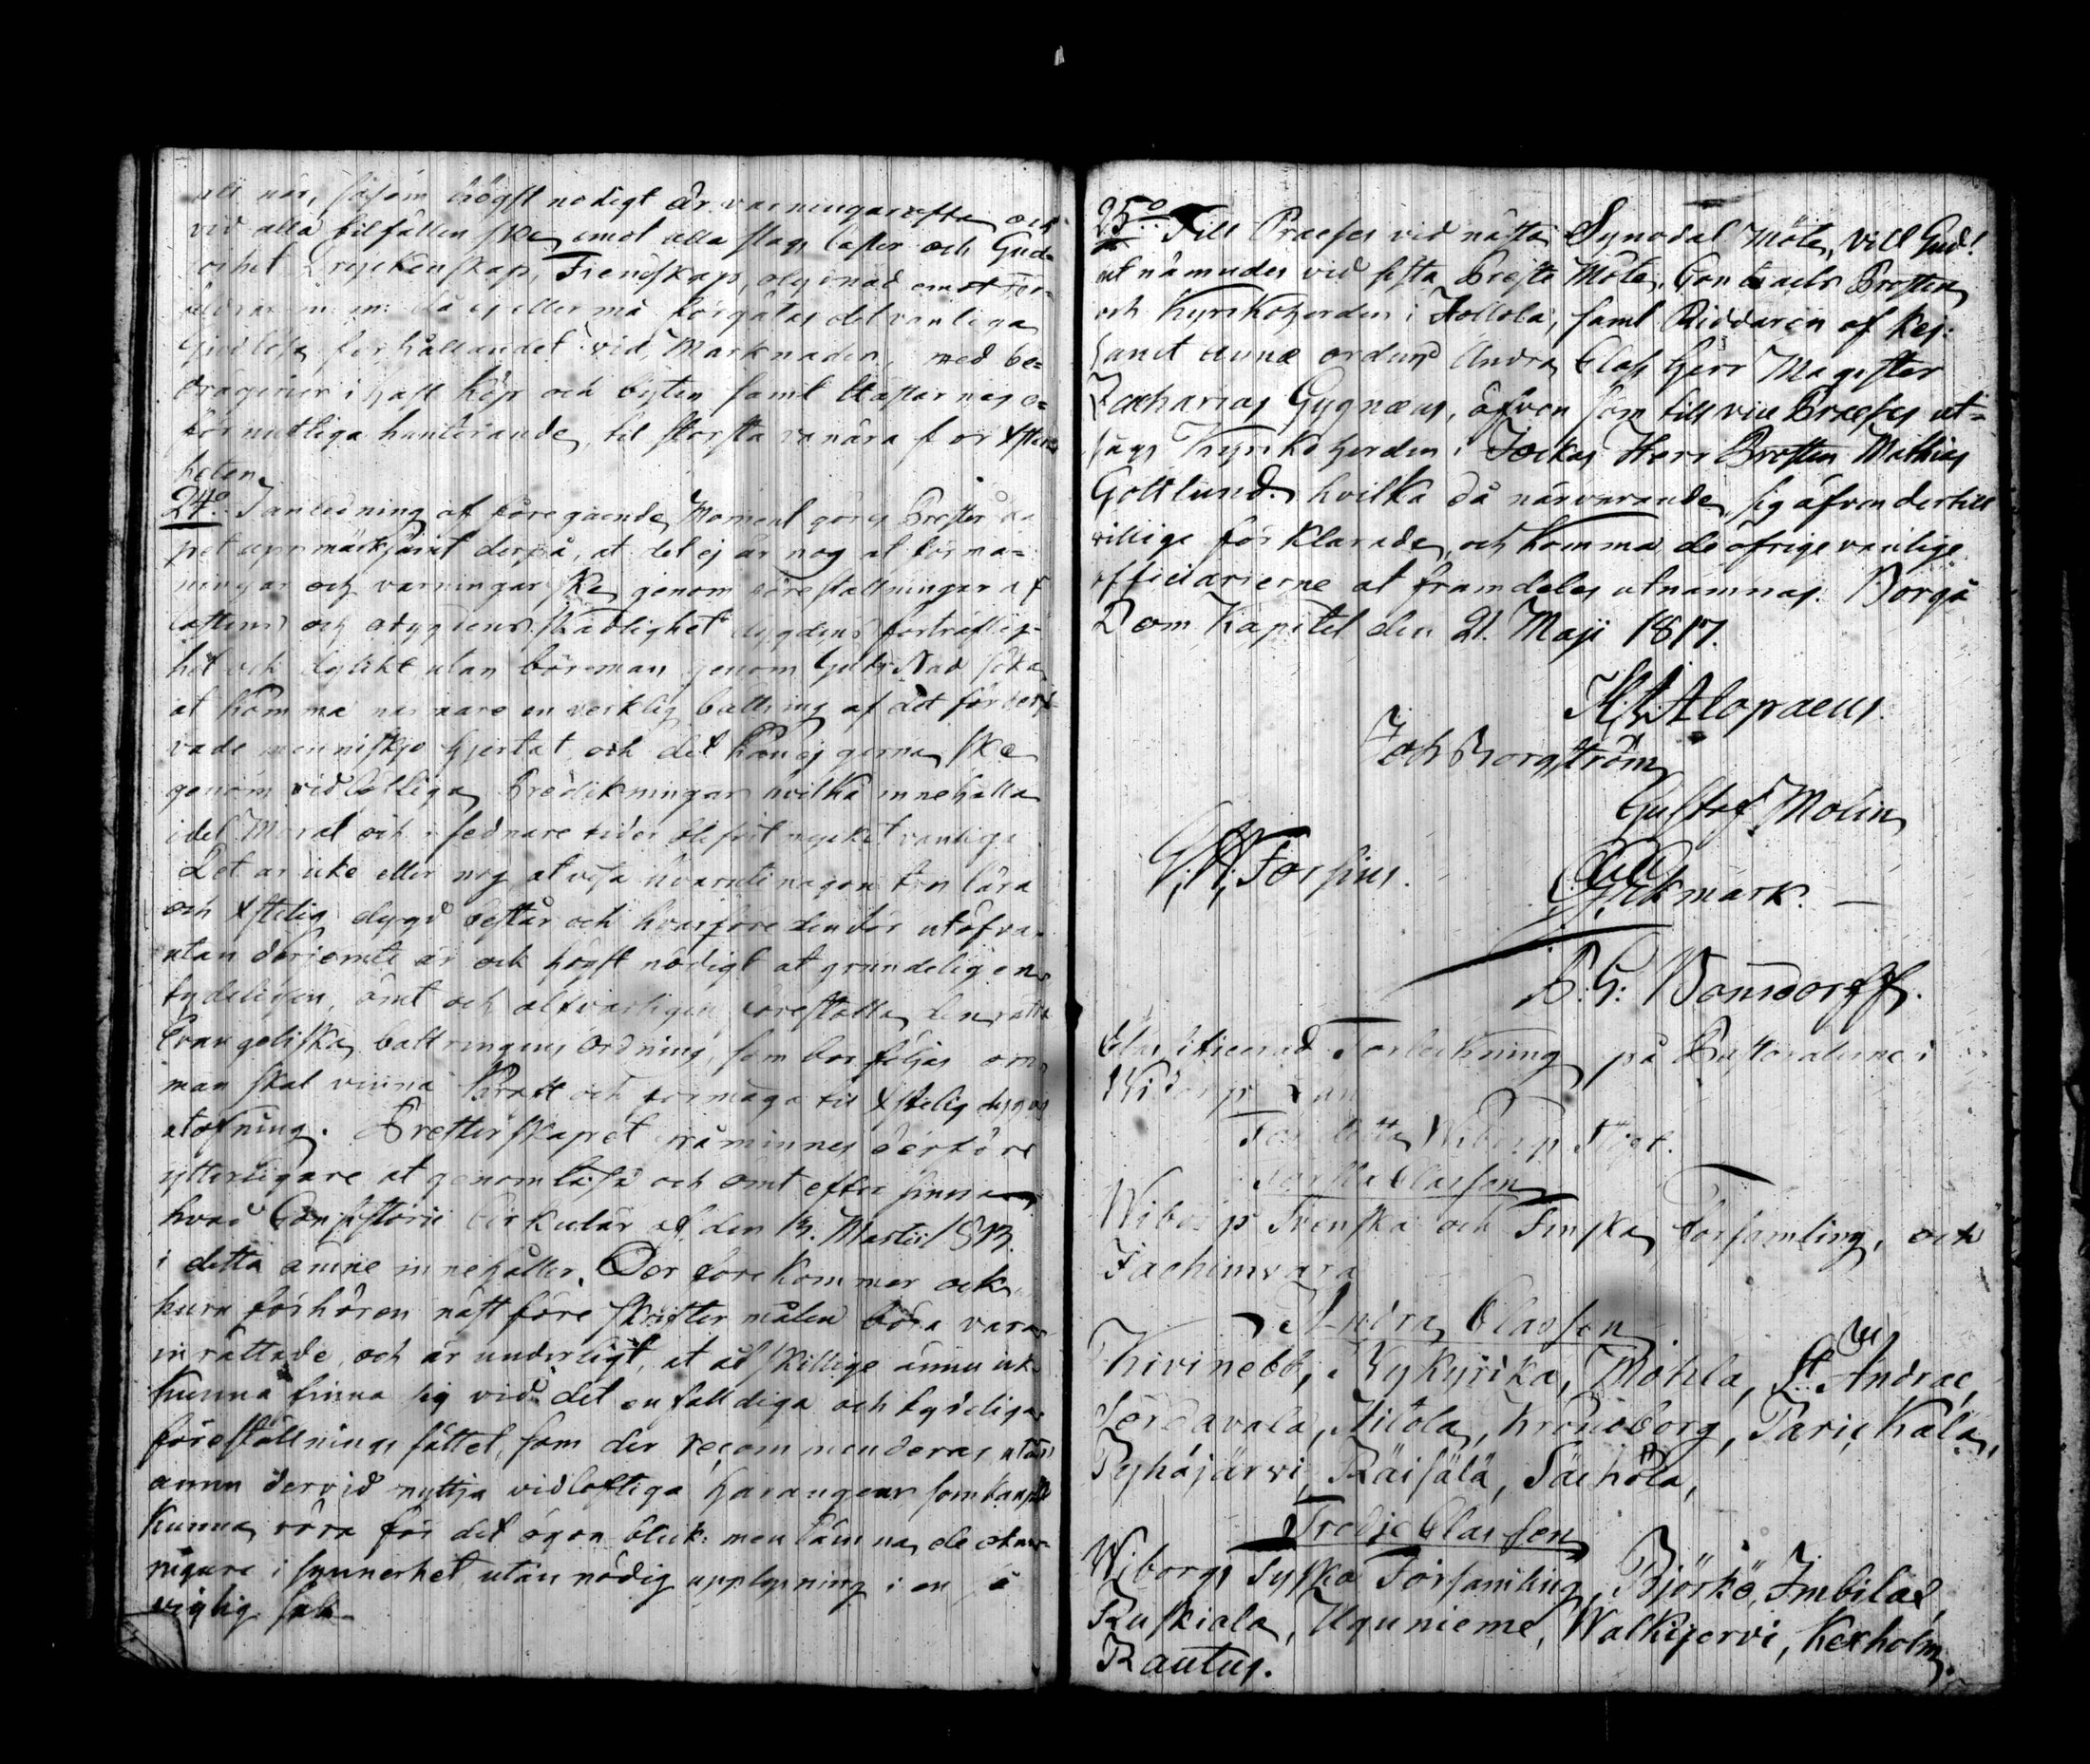 när, såsom högst nodigt är varningar ofta och
vid alla tilfällen ske emot alla slags laster och Gud=
löshet Dryckenskap, Fiendskap, olydnad emot För=
äldrar m: m: då ej eller må förgätas det vanliga
Gudlösa förhållandet vid Marknader, med be=
drägerier i hast köp och byten samt Hästarnes o=
förnuftliga hanterande, til största vanära för Xsten
heten.
24:o I anledning af föregående Moment göres Presterska
pet uppmärksamt derpå, at det ej är nog at förma=
ningar och varningar ske genom föreställningar af
lastens och odygdens skadlighet dygdens förträflig=
het och dylikt utan bör man genom Guds Nåd söka
at komma närmare en verklig bättring af det förderf=
vade menniskjo hjertat, och det kan ej gerna ske
genom vidlöftiga Predikningar hvilka innehålla
idel Moral och i sednare tider blifvit mycket vanliga
Det är icke eller nog at visa hvaruti någon tros lära
och Xstelig dygd består och hvarföre den bör utöfvas
utan därjemte är ock högst nödigt at grundeligen
tydeligen, ömt och alfvarligen föreställa den rätta
Evangeliska bättringens ordning, som bör följas om
man skal vinna Kraft och förmåga til Xstelig dygds
utöfning. Presterskapet påminnes derföre
ytterligare at genomläsa och ömt efter sinna
hvad Consistorii Cirkulär af den 13. Martii 1813.
i detta ämne innehåller. Der forekommer ock
huru förhören näst före skriftermålen böra vara
inrättade, och är underligt, at åtskillige ännu ick
kunna finna sig vid det enfalldiga och tydeliga
föreställnings sättet, som der recommenderas utan
ännu dervid nyttja vidlöftiga haranguer som kanske
kunna röra för det ögonblick: men lämna de okun-
nigare i synnerhet utan nödig upplysning i en så
vigtig sak
25:o Till Praeses vid nästa Synodal Möte, vill Gud!
utnämndes vid sista Preste Möte, Contracts Prosten
och Kyrkoherden i Hollola, samt Riddaren af Kej:
Sanct Annæ ordens Andra Class Herr Magister
Zacharias Cygnæus, äfven som till vice Præses ut=
sågs Kyrkoherden i Jockas Herr Prosten Mathias
Gottlund. hvilka då närvarande sig äfven dertill
villige förklarade, och komma de öfrige vanlige
officiarierne at framdeles utnämnas. Borgå
Dom Kapitel den 21. Maji 1817.
M: Alopaeus.
Joh Borgström
Gustaf Molin
G. A. Forsius.
G. Ekmark.
P: G: Bonsdorff.
Classificerad Förteckning på Pastoraterne i
Wiborgs Län
Första Classen
Wiborgs Svenska och Finska Församling, och
Jachimvara
Andra Classen
Kivinebb, Nykyrka, Mohla, St Andrae,
Sordavala, Hiitola, Kronoborg, Parickala,
Pyhäjärvi, Räisälä, Säckola,
Tredje Classen
Wiborgs Tyska Församling, Björkö, Imbilax,
Ruskiala, Uguniemi, Walkijervi, Kexholm,
Rautus.